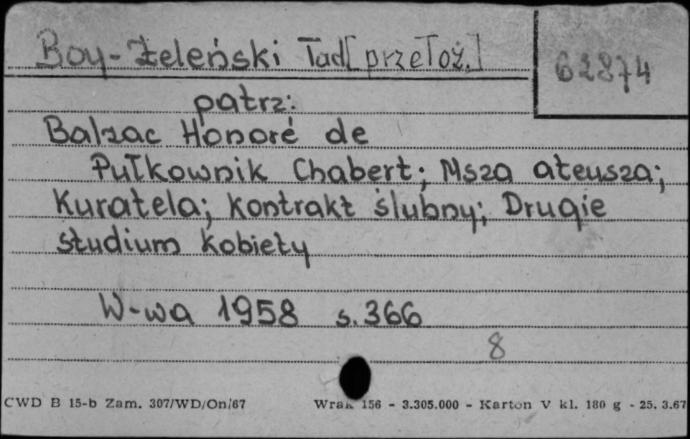 Boy-Żeleński Tad[przełoż.]
62874
patrz:
Balzac Honoré de
Pułkownik Chabert; Msza ateusza;
Kuratela; Kontrakt ślubny; Drugie
studium kobiety
W-wa 1958 s. 366
8
CWD B 15-b Zam. 307/WD/On/67 Wrak 156 - 3.305.000 - Karton V kl. 180 g - 25. 3.67